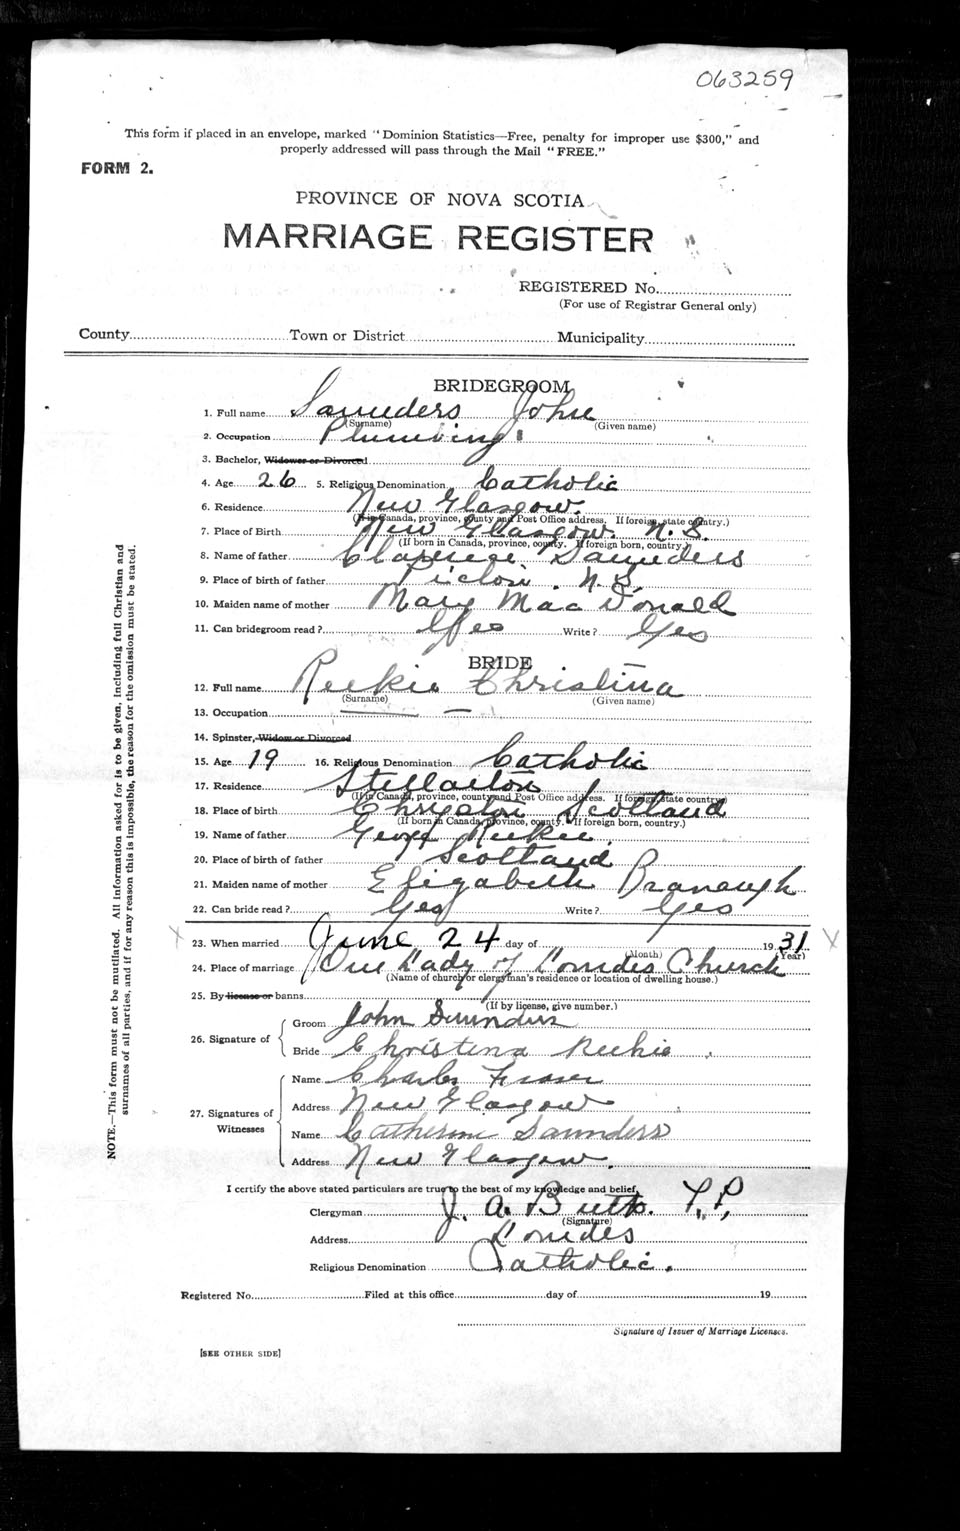 063259
This form if placed in an envelope, marked "Dominion Statistics—Free, penalty for improper use $300," and
properly addressed will pass through the Mail "FREE."
FORM 2.
PROVINCE OF NOVA SCOTIA
MARRIAGE REGISTER
REGISTERED No.
(For use of Registrar General only)
County Town or District Municipality
BRIDEGROOM
1. Full name Saunders John
(Surname) (Given name)
2. Occupation Plumbing
3. Bachelor, Widower or Divorced
4. Age 26 5. Religious Denomination Catholic
6. Residence New Glasgow.
(If in Canada, province, county and Post Office address. If foreign, state country.)
7. Place of Birth New Glasgow. N.S.
(If born in Canada, province, county. If foreign born, country.)
8. Name of father Clarence Saunders
9. Place of birth of father Pictou. N.S.
10. Maiden name of mother Mary MacDonald
11. Can bridegroom read? Yes Write? Yes
BRIDE
12. Full name Reekie Christina
(Surname) (Given name)
13. Occupation —
14. Spinster, Widow or Divorced
15. Age 19 16. Religious Denomination Catholic
17. Residence Stellarton
(If in Canada, province, county and Post Office address. If foreign, state country.)
18. Place of birth Scotland
(If born in Canada, province, county. If foreign born, country.)
19. Name of father George Reekie.
20. Place of birth of father Scotland
21. Maiden name of mother Elizabeth Branaugh
22. Can bride read? Yes Write? Yes
X 23. When married June 24 day of 19 31 X
(Month) (Year)
24. Place of marriage Our Lady of Lourdes Church
(Name of church or clergyman's residence or location of dwelling house.)
25. By license or banns
(If by license, give number.)
26. Signature of
Groom John Saunders
Bride Christina Reekie
27. Signatures of Witnesses
Name Charles Fraser
Address New Glasgow
Name Catherine Saunders
Address New Glasgow.
I certify the above stated particulars are true to the best of my knowledge and belief.
Clergyman J. A. Butts. P.P.
(Signature)
Address Lourdes
Religious Denomination Catholic.
Registered No. Filed at this office day of 19
Signature of Issuer of Marriage Licenses.
[SEE OTHER SIDE]
NOTE.—This form must not be mutilated. All information asked for is to be given, including full Christian and
surnames of all parties, and if for any reason this is impossible, the reason for the omission must be stated.